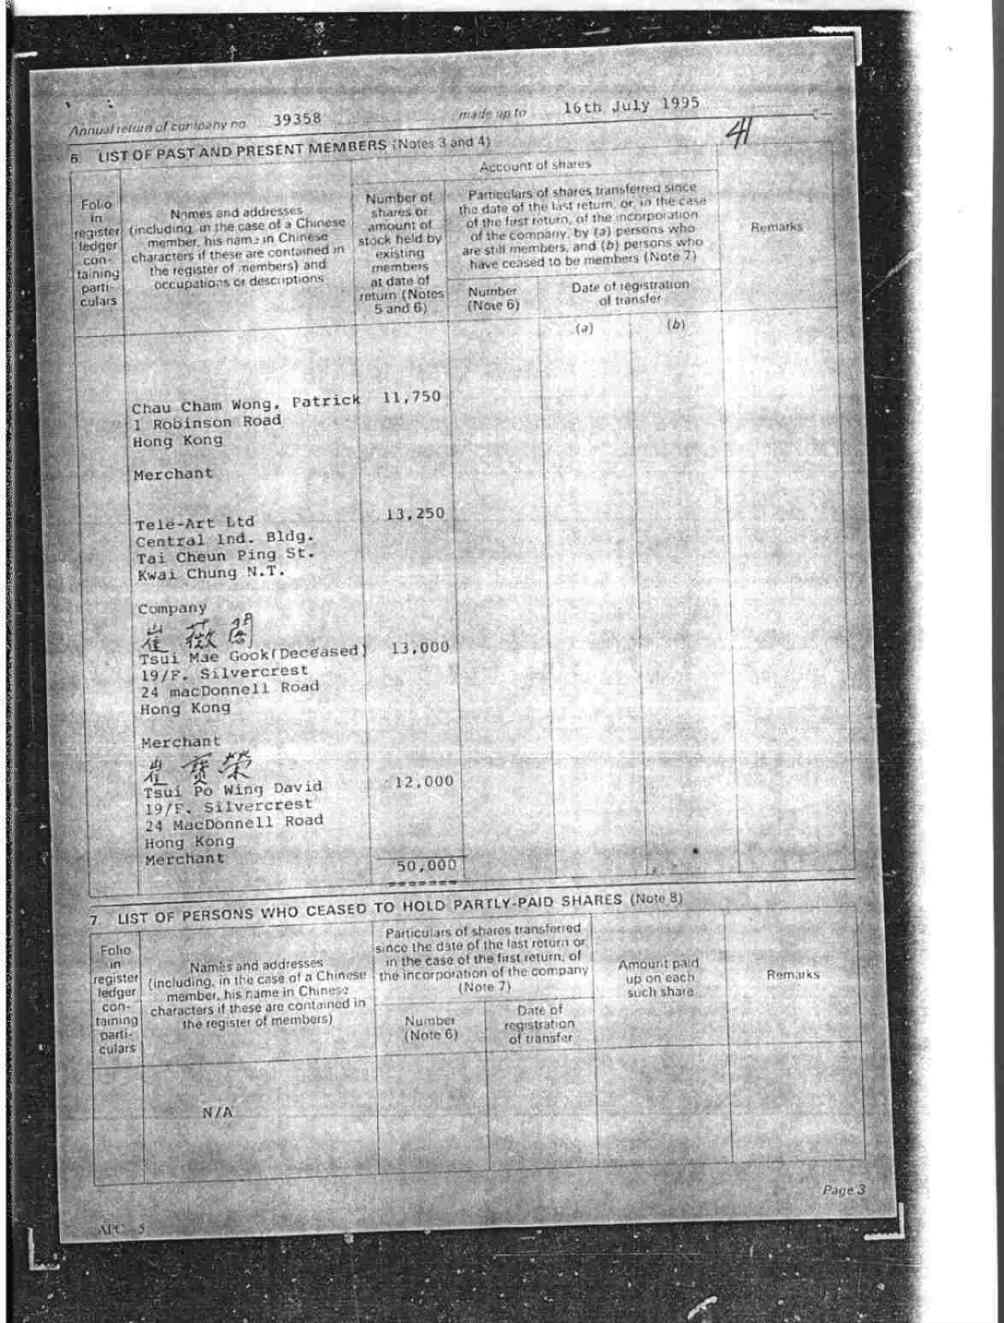 Annual return of company no. 39358 made up to 16th July 1995
41
6. LIST OF PAST AND PRESENT MEMBERS (Notes 3 and 4)
Folio
in
register
ledger
con-
taining
parti-
culars
Names and addresses
(including, in the case of a Chinese
member, his name in Chinese
characters if these are contained in
the register of members) and
occupations or descriptions
Account of shares
Number of
shares or
amount of
stock held by
existing
members
at date of
return (Notes
5 and 6)
Particulars of shares transferred since
the date of the last return, or, in the case
of the first return, of the incorporation
of the company, by (a) persons who
are still members, and (b) persons who
have ceased to be members (Note 7)
Number
(Note 6)
Date of registration
of transfer
(a)
(b)
Remarks
Chau Cham Wong, Patrick 11,750
1 Robinson Road
Hong Kong
Merchant
Tele-Art Ltd 13,250
Central Ind. Bldg.
Tai Cheun Ping St.
Kwai Chung N.T.
Company
崔薇閣
Tsui Mae Gook(Deceased) 13,000
19/F. Silvercrest
24 macDonnell Road
Hong Kong
Merchant
崔寶榮
Tsui Po Wing David 12,000
19/F. Silvercrest
24 MacDonnell Road
Hong Kong
Merchant
50,000
=======
7. LIST OF PERSONS WHO CEASED TO HOLD PARTLY-PAID SHARES (Note 8)
Folio
in
register
ledger
con-
taining
parti-
culars
Names and addresses
(including, in the case of a Chinese
member, his name in Chinese
characters if these are contained in
the register of members)
Particulars of shares transferred
since the date of the last return or,
in the case of the first return, of
the incorporation of the company
(Note 7)
Number
(Note 6)
Date of
registration
of transfer
Amount paid
up on each
such share
Remarks
N/A
Page 3